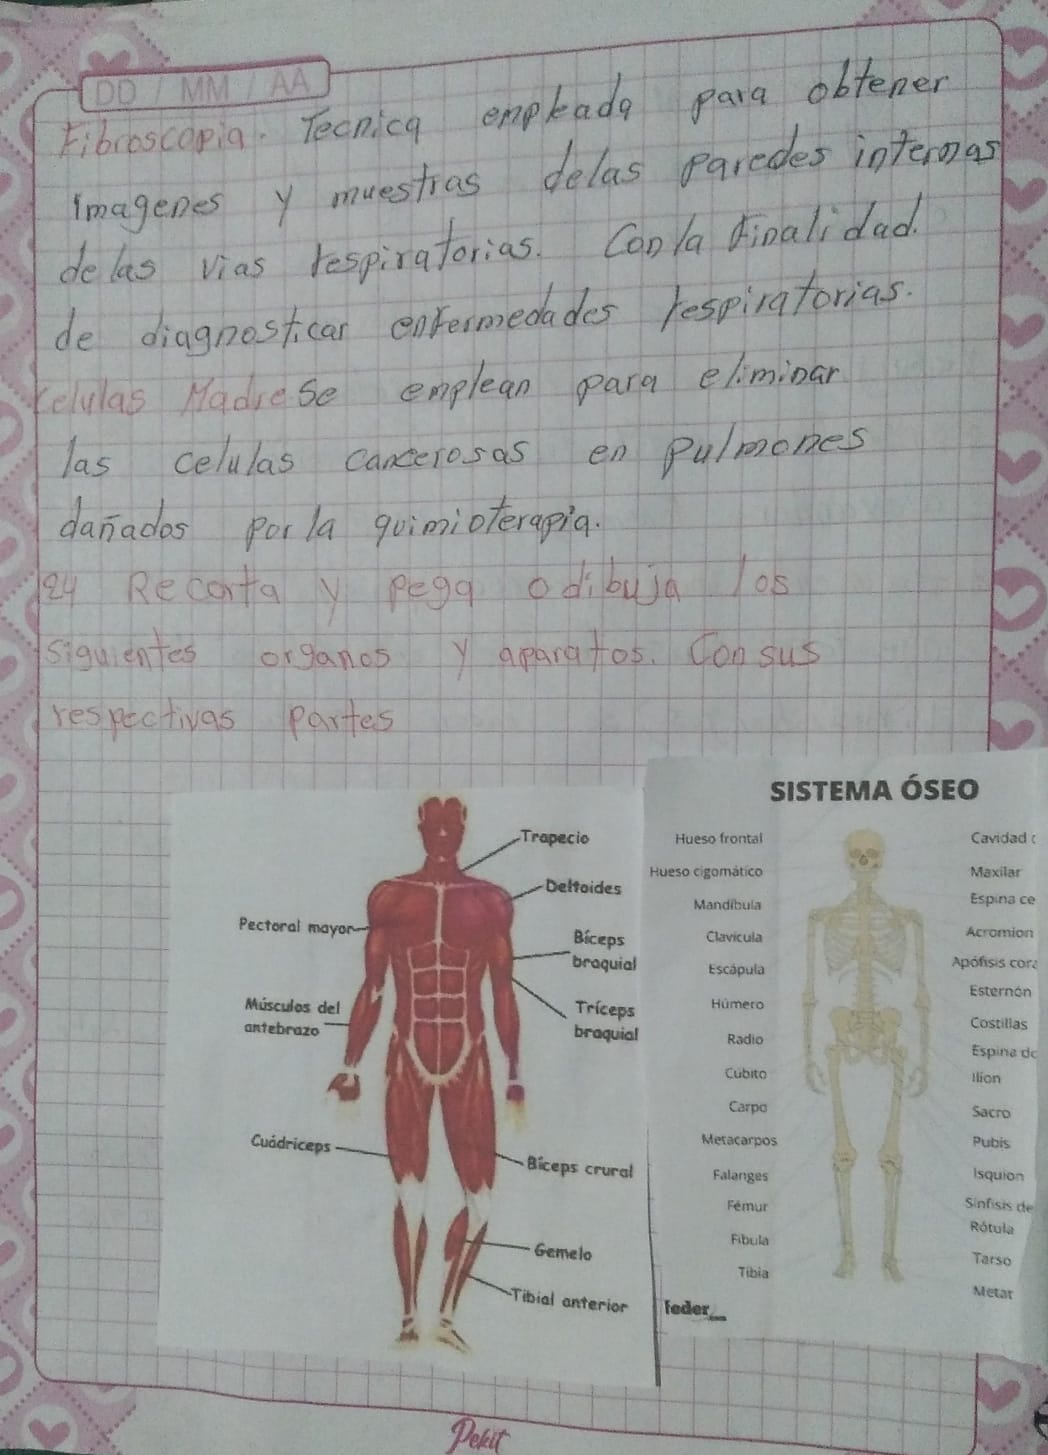 DD / MM / AA
Fibroscopia. Tecnica empleada para obtener
imagenes y muestras delas paredes internas
de las vias respiratorias. Con la finalidad.
de diagnosticar enfermedades respiratorias.
Celulas Madre Se emplean para eliminar
las celulas cancerosas en pulmones
dañados por la quimioterapia.
24 Recorta y pega o dibuja los
siguientes organos y aparatos. Con sus
respectivas partes
Trapecio
Deltoides
Pectoral mayor
Bíceps
braquial
Músculos del
antebrazo
Tríceps
braquial
Cuádriceps
Bíceps crural
Gemelo
Tibial anterior
SISTEMA ÓSEO
Hueso frontal
Hueso cigomático
Mandíbula
Clavícula
Escápula
Húmero
Radio
Cúbito
Carpo
Metacarpos
Falanges
Fémur
Fíbula
Tibia
Cavidad
Maxilar
Espina ce
Acromion
Apófisis cora
Esternón
Costillas
Espina do
Ilíon
Sacro
Pubis
Isquion
Sínfisis de
Rótula
Tarso
Metat
feder
Pekit